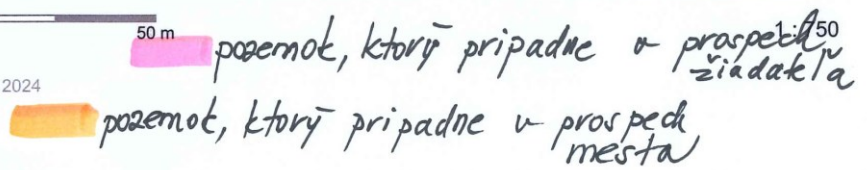 50 m
pozemok, ktorý pripadne v prospech
žiadateľa
2024
pozemok, ktorý pripadne v prospech
mesta